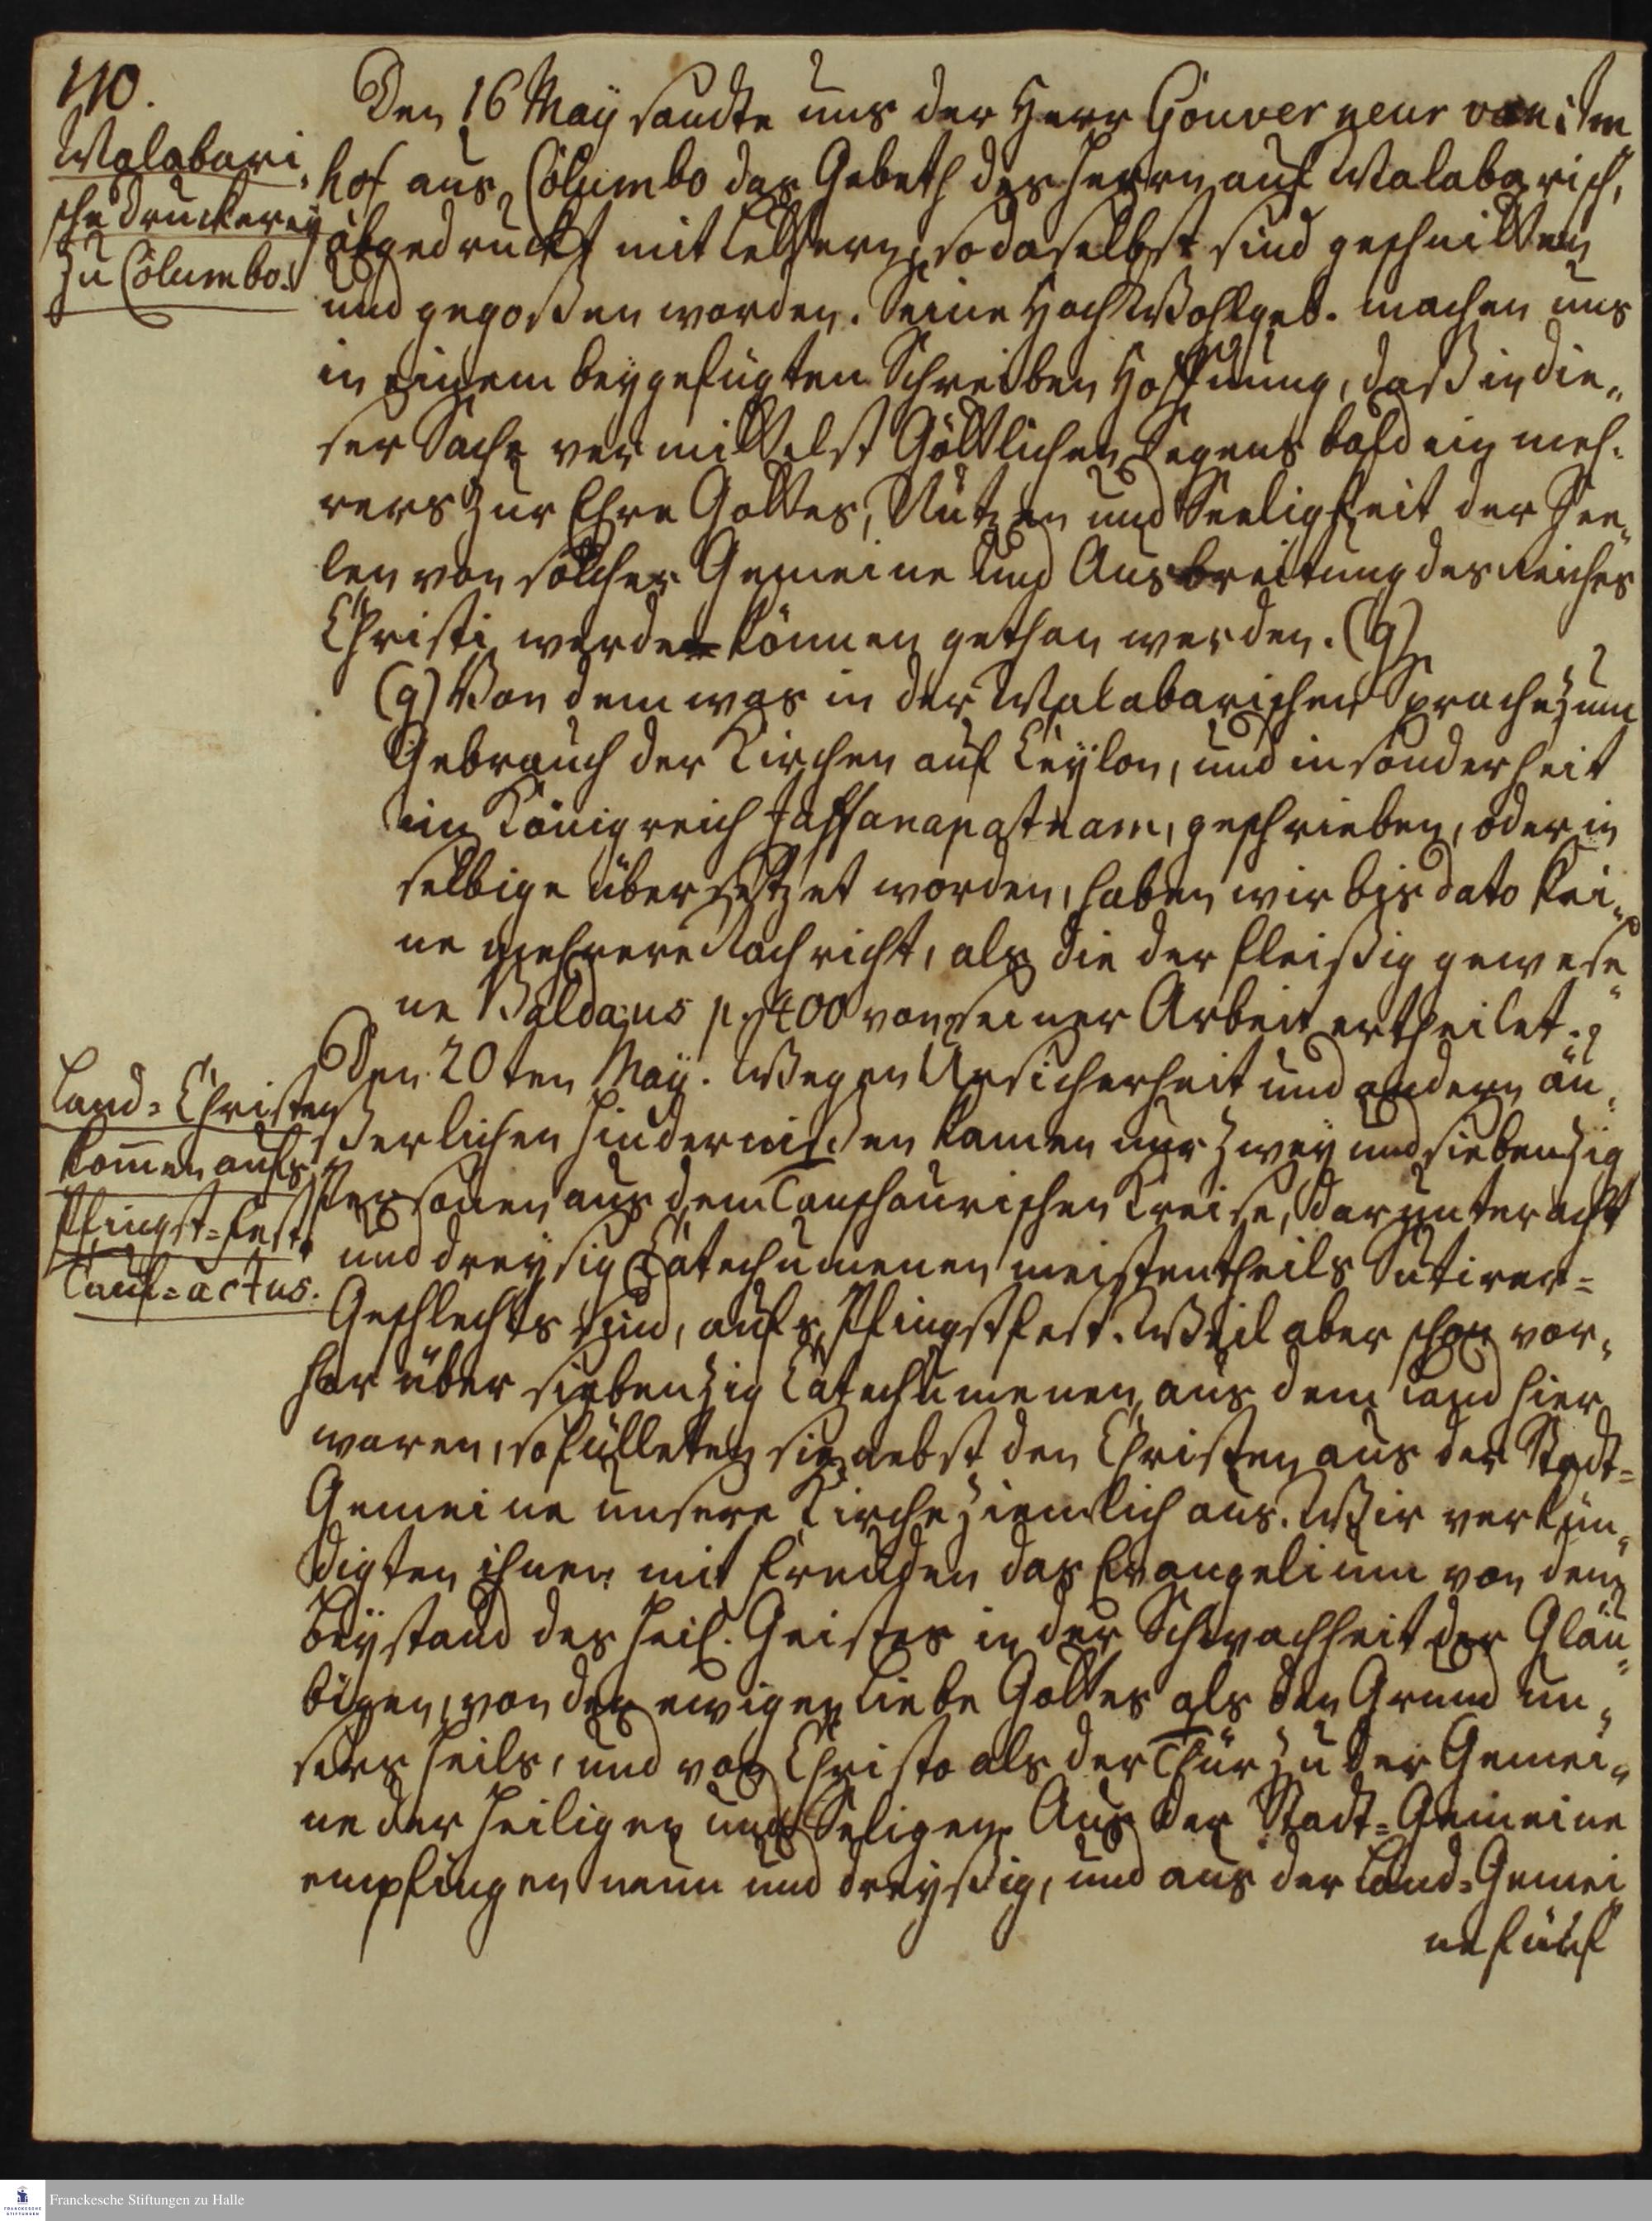 110.
Malabari„
sche Druckerey
zu Columbo.
Den 16 May sandte uns der Herr Gouverneur van im„
hof aus Columbo das Gebeth des Herrn auf Malabarisch,
abgedruckt mit Lettern, so daselbst sind geschnitten
und gegoßen worden. Seine HochWohlgeb. machen uns
in einem beygefügten Schreiben Hoffnung, daß in die„
ser Sache vermittelst Göttlichen Segens bald ein meh„
rers zur Ehre Gottes, Nutzen und Seeligkeit der See„
len von solcher Gemeine und Ausbreitung des Reiches
Christi werde können gethan werden. (q)
(q) Von dem was in der Malabarischen Sprache zum
Gebrauch der Kirchen auf Ceylon, und insonderheit
im Königreich Jaffanapatnam, geschrieben, oder in
selbige übersetzet worden, haben wir bis dato kei„
ne mehrere Nachricht, als die der fleißig gewese„
ne Baldaeus p. 400 von seiner Arbeit ertheilet.
Land-Christen
kom̅en aufs
Pfingst-Fest.
Tauf-actus.
Den 20ten May. Wegen Unsicherheit und andern äu„
ßerlichen Hindernißen kamen nur zwey und siebenzig
Personen aus dem Tanschaurischen Kreise, darunter acht
und dreysig Catechumenen meistentheils Sutirer-
Geschlechts sind, aufs Pfingstfest. Weil aber schon vor„
her über siebenzig Catechumenen aus dem Land hier
waren, so fülleten sie nebst den Christen aus der Stadt-
Gemeine unsere Kirche ziemlich aus. Wir verkün„
digten ihnen mit Freuden das Evangelium von dem
Beystand des Heil. Geistes in der Schwachheit der Gläu„
bigen, von der ewigen Liebe Gottes als den Grund un„
sers Heils, und von Christo als der Thür zu der Gemei„
ne der Heiligen und Seligen. Aus der Stadt-Gemeine
empfingen neun und dreyßig, und aus der Land-Gemei„
ne fünf
Franckesche Stiftungen zu Halle
FRANCKESCHE
STIFTUNGEN